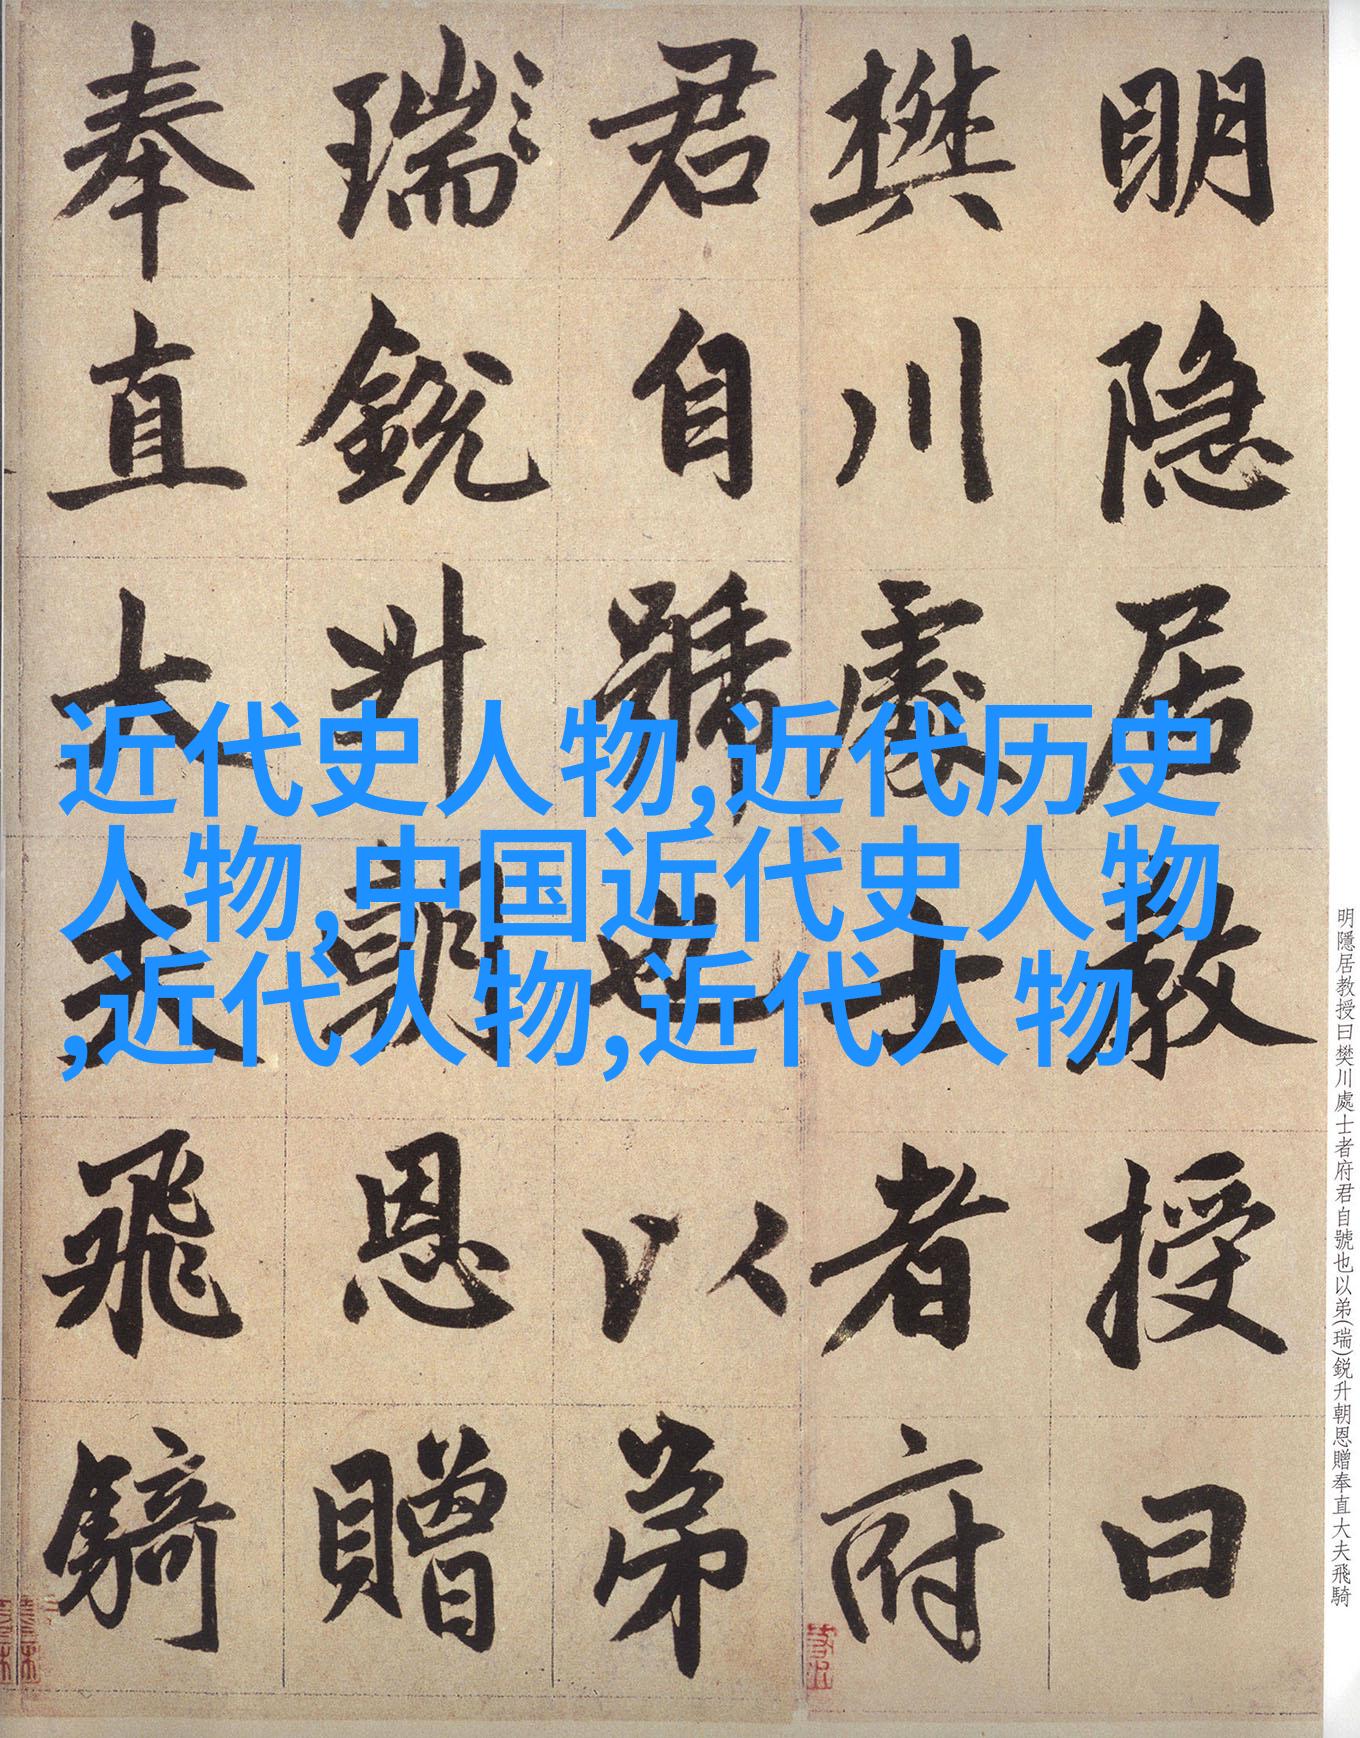 明隐居教授曰
樊川處士者府
君自號也以弟
瑞銳升朝恩贈
奉直大夫飛騎
近代史人物,近代历史
人物,中国近代史人物
,近代人物,近代人物
明隱居教授曰樊川處士者府君自號也以弟(瑞)鋭升朝恩贈奉直大夫飛騎